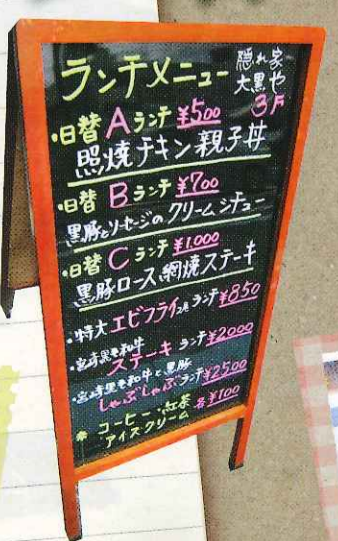 ランチメニュー
隠れ家
大黒や
3F
・日替Aランチ ¥500
照焼チキン親子丼
・日替Bランチ ¥700
黒豚とソーセージのクリームシチュー
・日替Cランチ ¥1,000
黒豚ロース網焼ステーキ
・特大エビフライ2本ランチ¥850
・宮崎黒毛和牛
ステーキランチ¥2000
・宮崎黒毛和牛と黒豚
しゃぶしゃぶランチ¥2500
* コーヒー・紅茶 各¥100
アイスクリーム